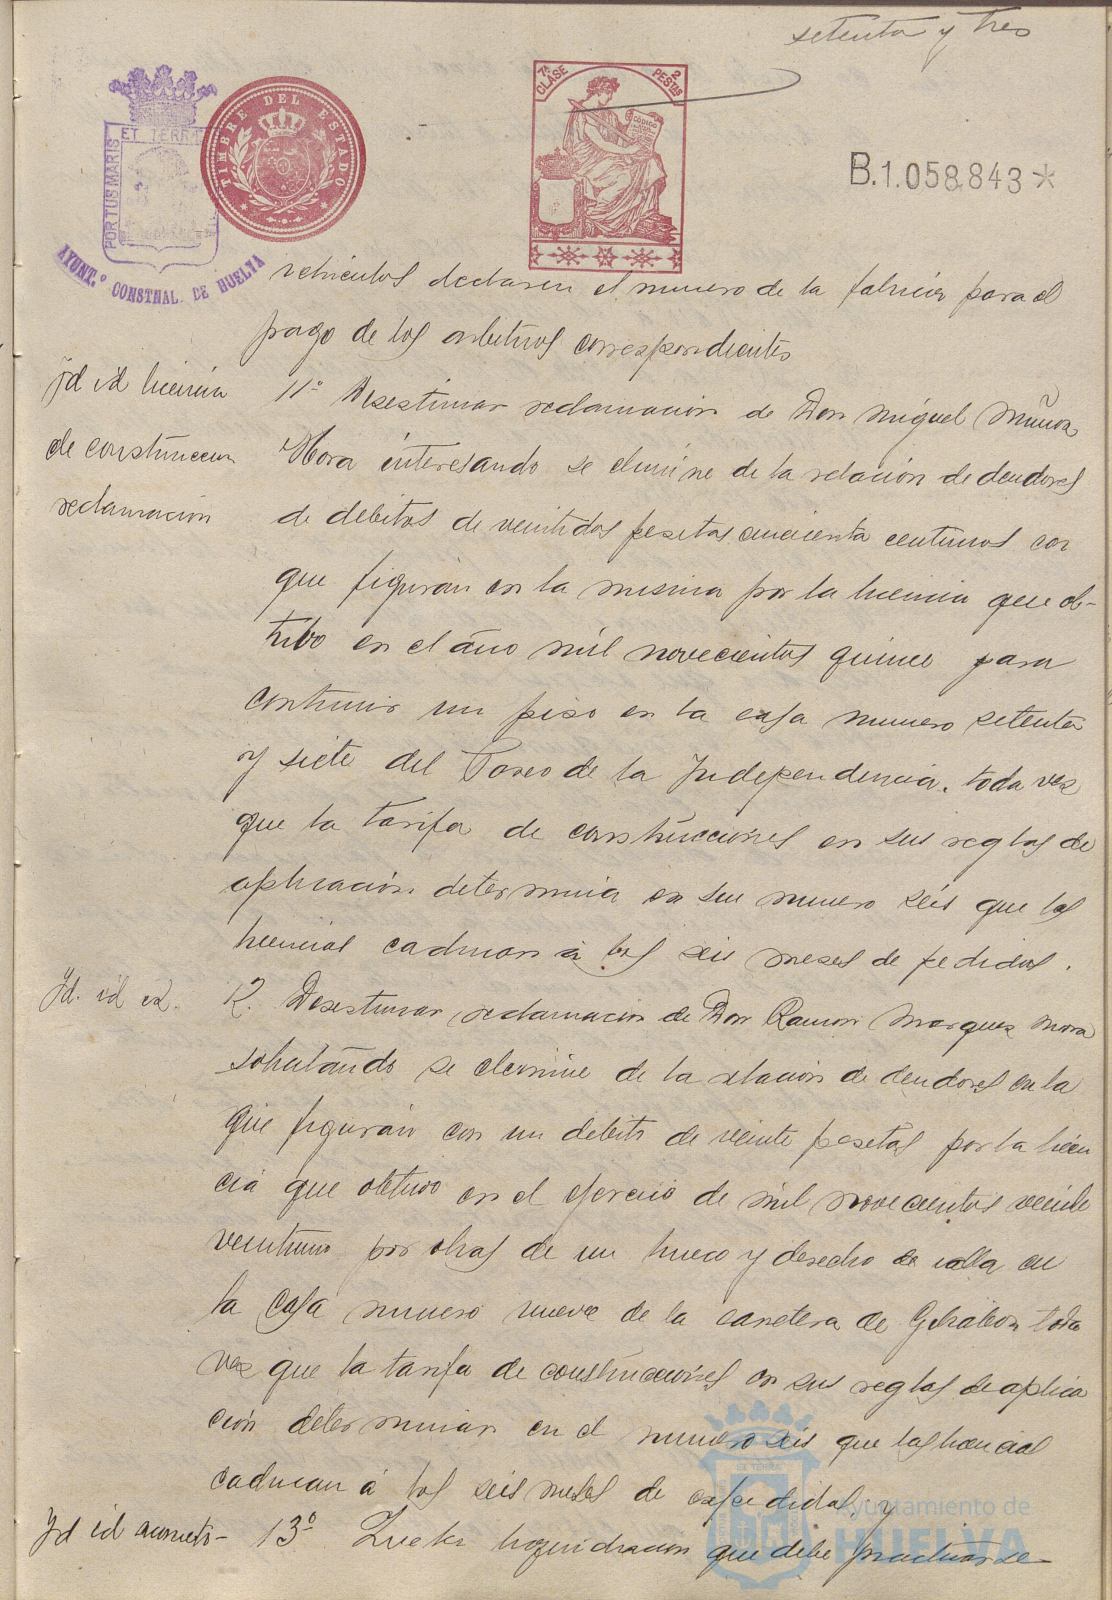 setenta y tres
7ª CLASE 2 PESTAS
CÓDIGO
TIMBRE DEL ESTADO
PORTUS MARIS ET TERRÆ
AYUNT.º CONSTNAL. DE HUELVA
B.1.058.843*
vehiculos declaren el numero de la fabrica para el
pago de los arbitrios correspondientes
Id id licencia
de construccion
reclamación
11º Desestimar reclamación de Don Miguel Muñoz
Mora interesando se elimine de la relación de deudores
de debitos de veintidos pesetas cincuenta centimos con
que figuran en la misma por la licencia que ob-
tubo en el año mil novecientos quince para
contruir un piso en la casa numero setenta
y siete del Paseo de la Independencia, toda vez
que la tarifa de construcciones en sus reglas de
aplicación determina en su numero seis que las
licencias caducan á los seis meses de pedidas.
Id. id id.
12. Desestimar reclamación de Don Ramon Marquez Mora
solicitando se elimine de la relación de deudores en la
que figuran con un debito de veinte pesetas por la licen
cia que obtuvo en el ejercicio de mil novecientos veinte
veintiuno por obras de un hueco y derecho de valla en
la casa numero nueve de la carretera de Gibraleon toda
vez que la tarifa de construcciones en sus reglas de aplica
ción determinan en el numero seis que las licencias
caducan á los seis meses de expedidas, y
Id id aumento-
13º liquidacion que debe practicarse
ET TERRA
Ayuntamiento de
HUELVA